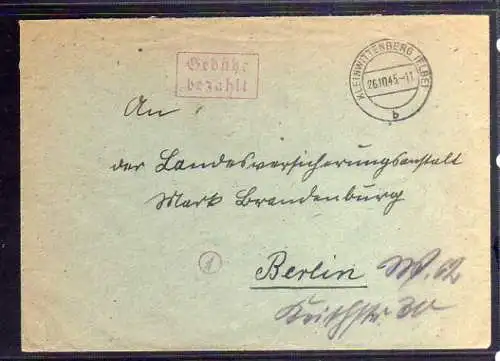 Gebühr
bezahlt
KLEINWITTENBERG (ELBE)
26.10.45.-11
b
An
der Landesversicherungsanstalt
Mark Brandenburg
1
Berlin W. 62
Keithstr. 30